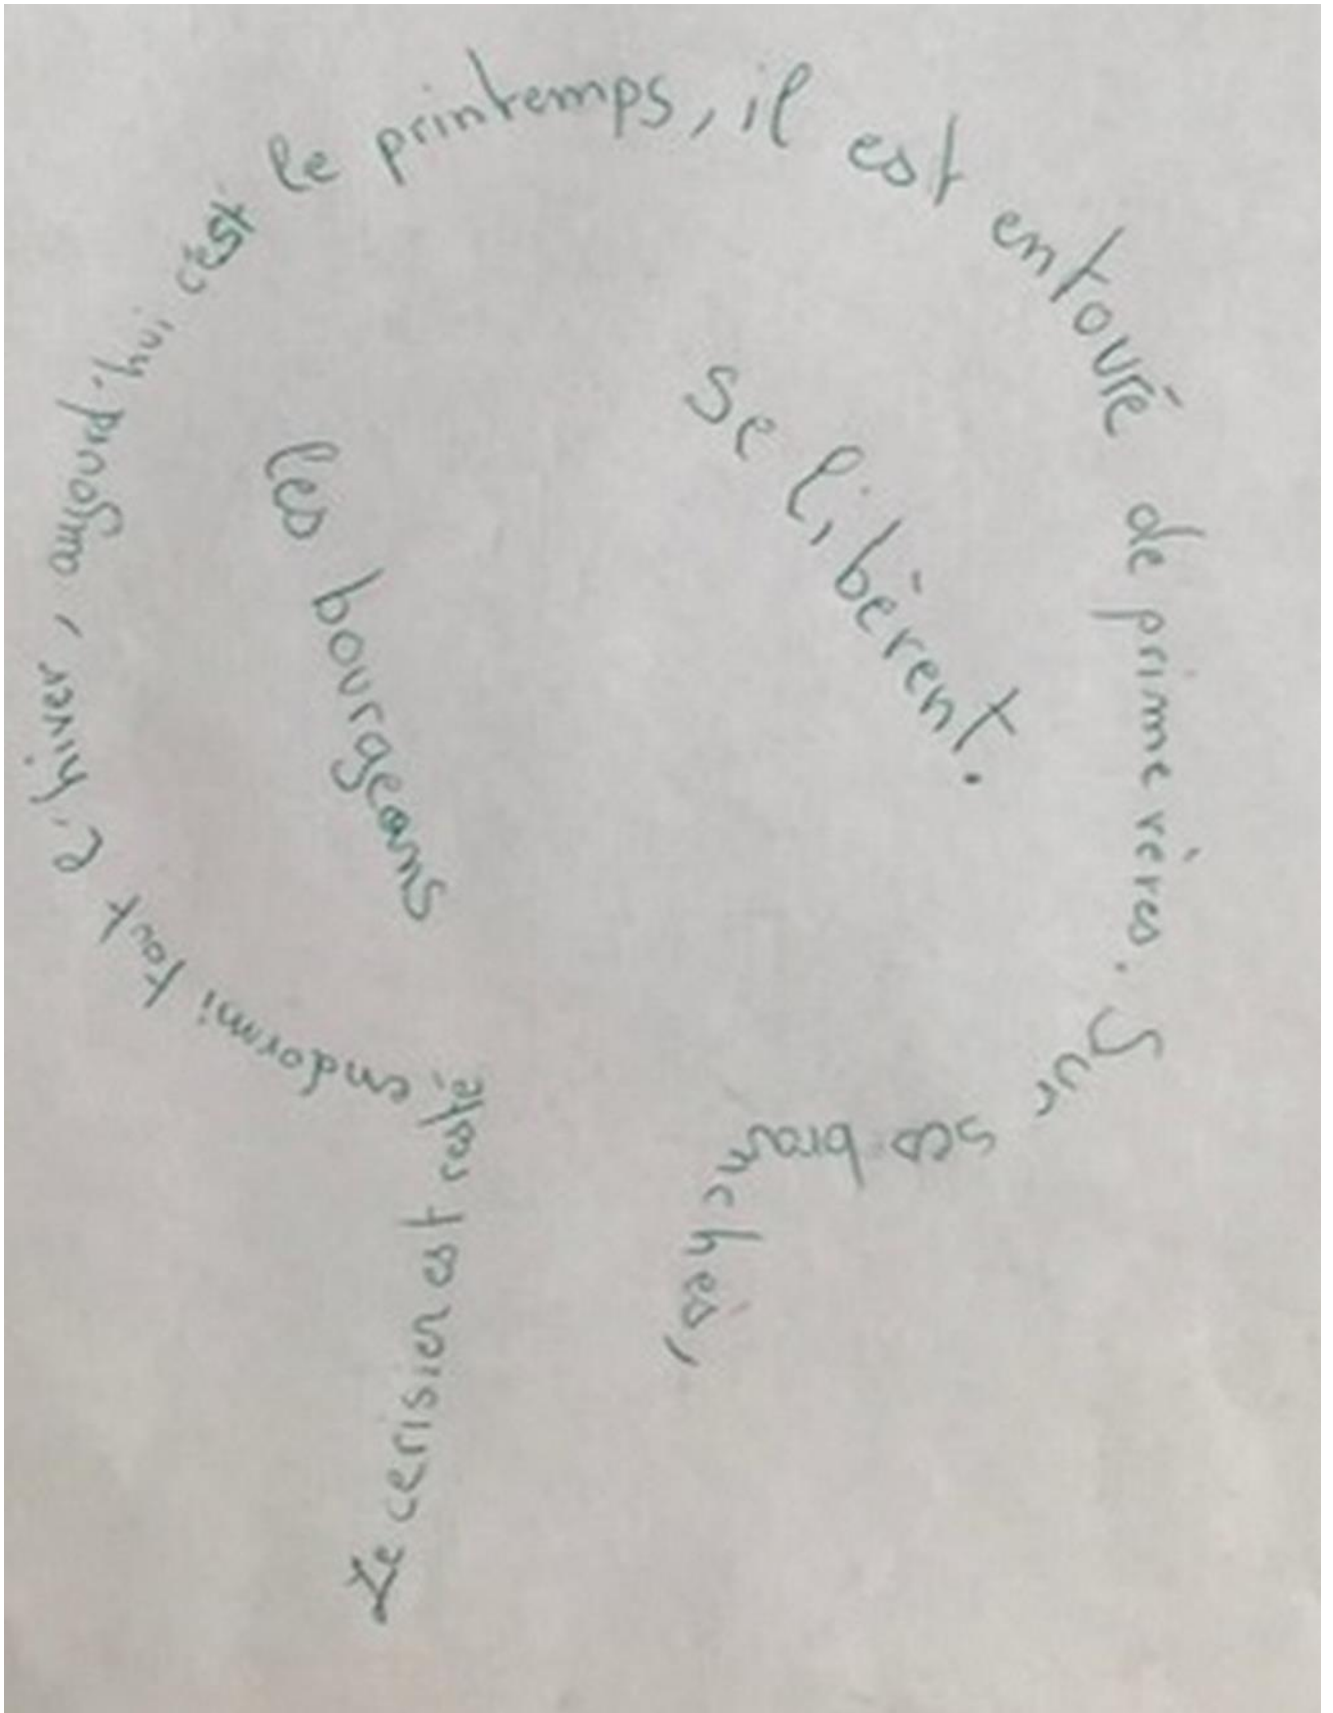 Le cerisier est resté endormi tout l'hiver, aujourd'hui, c'est le printemps, il est entouré de primevères. Sur ses branches,
les bourgeons
se libèrent.